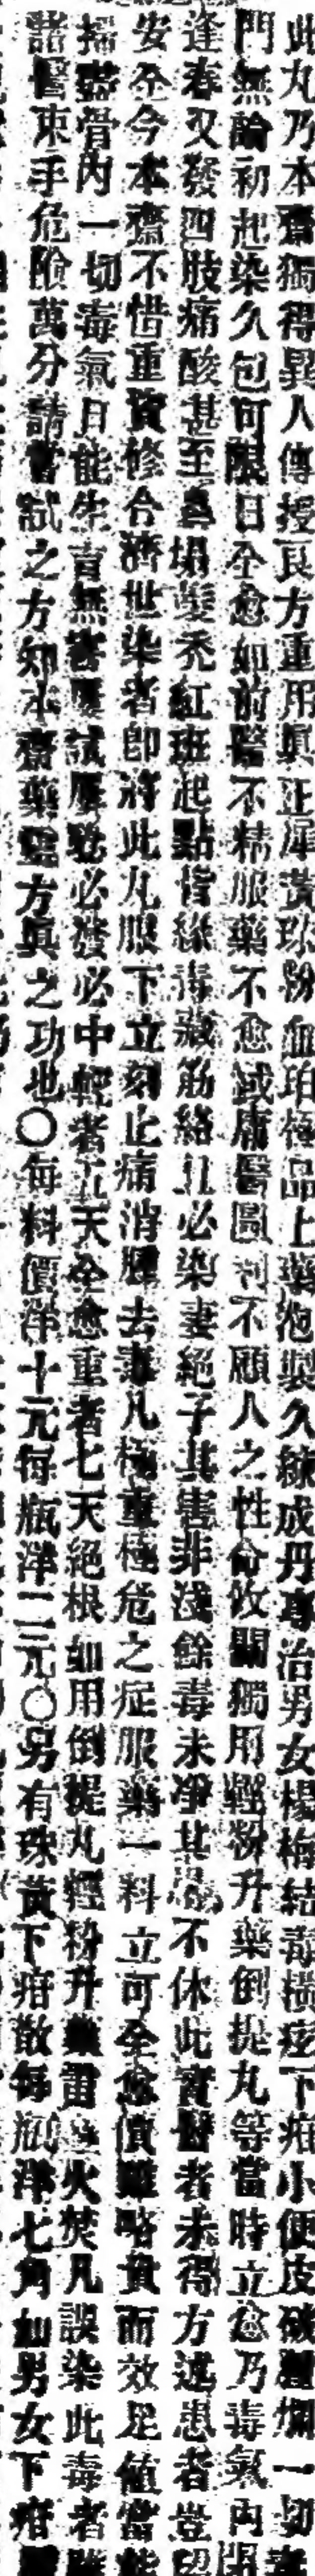 此丸乃本齋獨得異人傳授良方重用眞正犀黃珠粉血珀極品上藥泡製久練成丹專治男女楊梅結毒橫痃下疳小便皮破潰爛一切毒
門無論初起染久包可限日全愈如前醫不精服藥不愈或庸醫圖利不顧人之性命攻關獨用輕粉升藥倒提丸等當時立愈乃毒氣內
逢春又發四肢痛酸甚至鼻塌髮禿紅斑起點皆緣毒藏筋絡且必染妻絕子其害非淺餘毒未淨其患不休此實醫者未得方遂患者豈
安全今本齋不惜重資修合濟世染者卽將此丸服下立刻止痛消腫去毒凡極重極危之症服藥一料立可全愈價雖略貴而效足值當能
搖鬆骨內一切毒氣日能生育無害屢試屢驗必發必中輕者五天全愈重者七天絕根如用倒提丸輕粉升藥雷火焚凡誤染此毒者雖
諸醫束手危險萬分請嘗試之方知本齋藥靈方眞之功也〇每料價洋十元每瓶洋二元〇另有珠黃下疳散每瓶洋七角如男女下疳